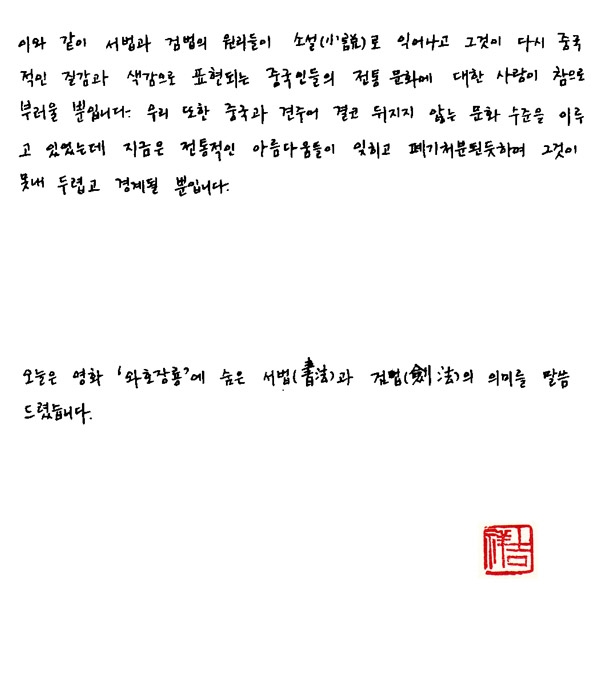 이와 같이 서법과 검법의 원리들이 소설(小說)로 익어나고 그것이 다시 중국
적인 질감과 색감으로 표현되는 중국인들의 전통 문화에 대한 사랑이 참으로
부러울 뿐입니다. 우리 또한 중국과 견주어 결코 뒤지지 않는 문화 수준을 이루
고 있었는데 지금은 전통적인 아름다움들이 잊히고 폐기처분된듯하여 그것이
못내 두렵고 경계될 뿐입니다.
오늘은 영화 '와호장룡'에 숨은 서법(書法)과 검법(劍法)의 의미를 말씀
드렸습니다.
吉祥